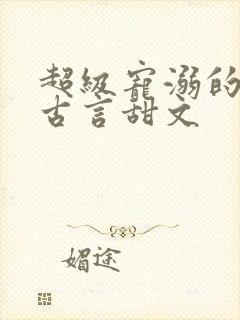 超级宠溺的
古言甜文
媚途